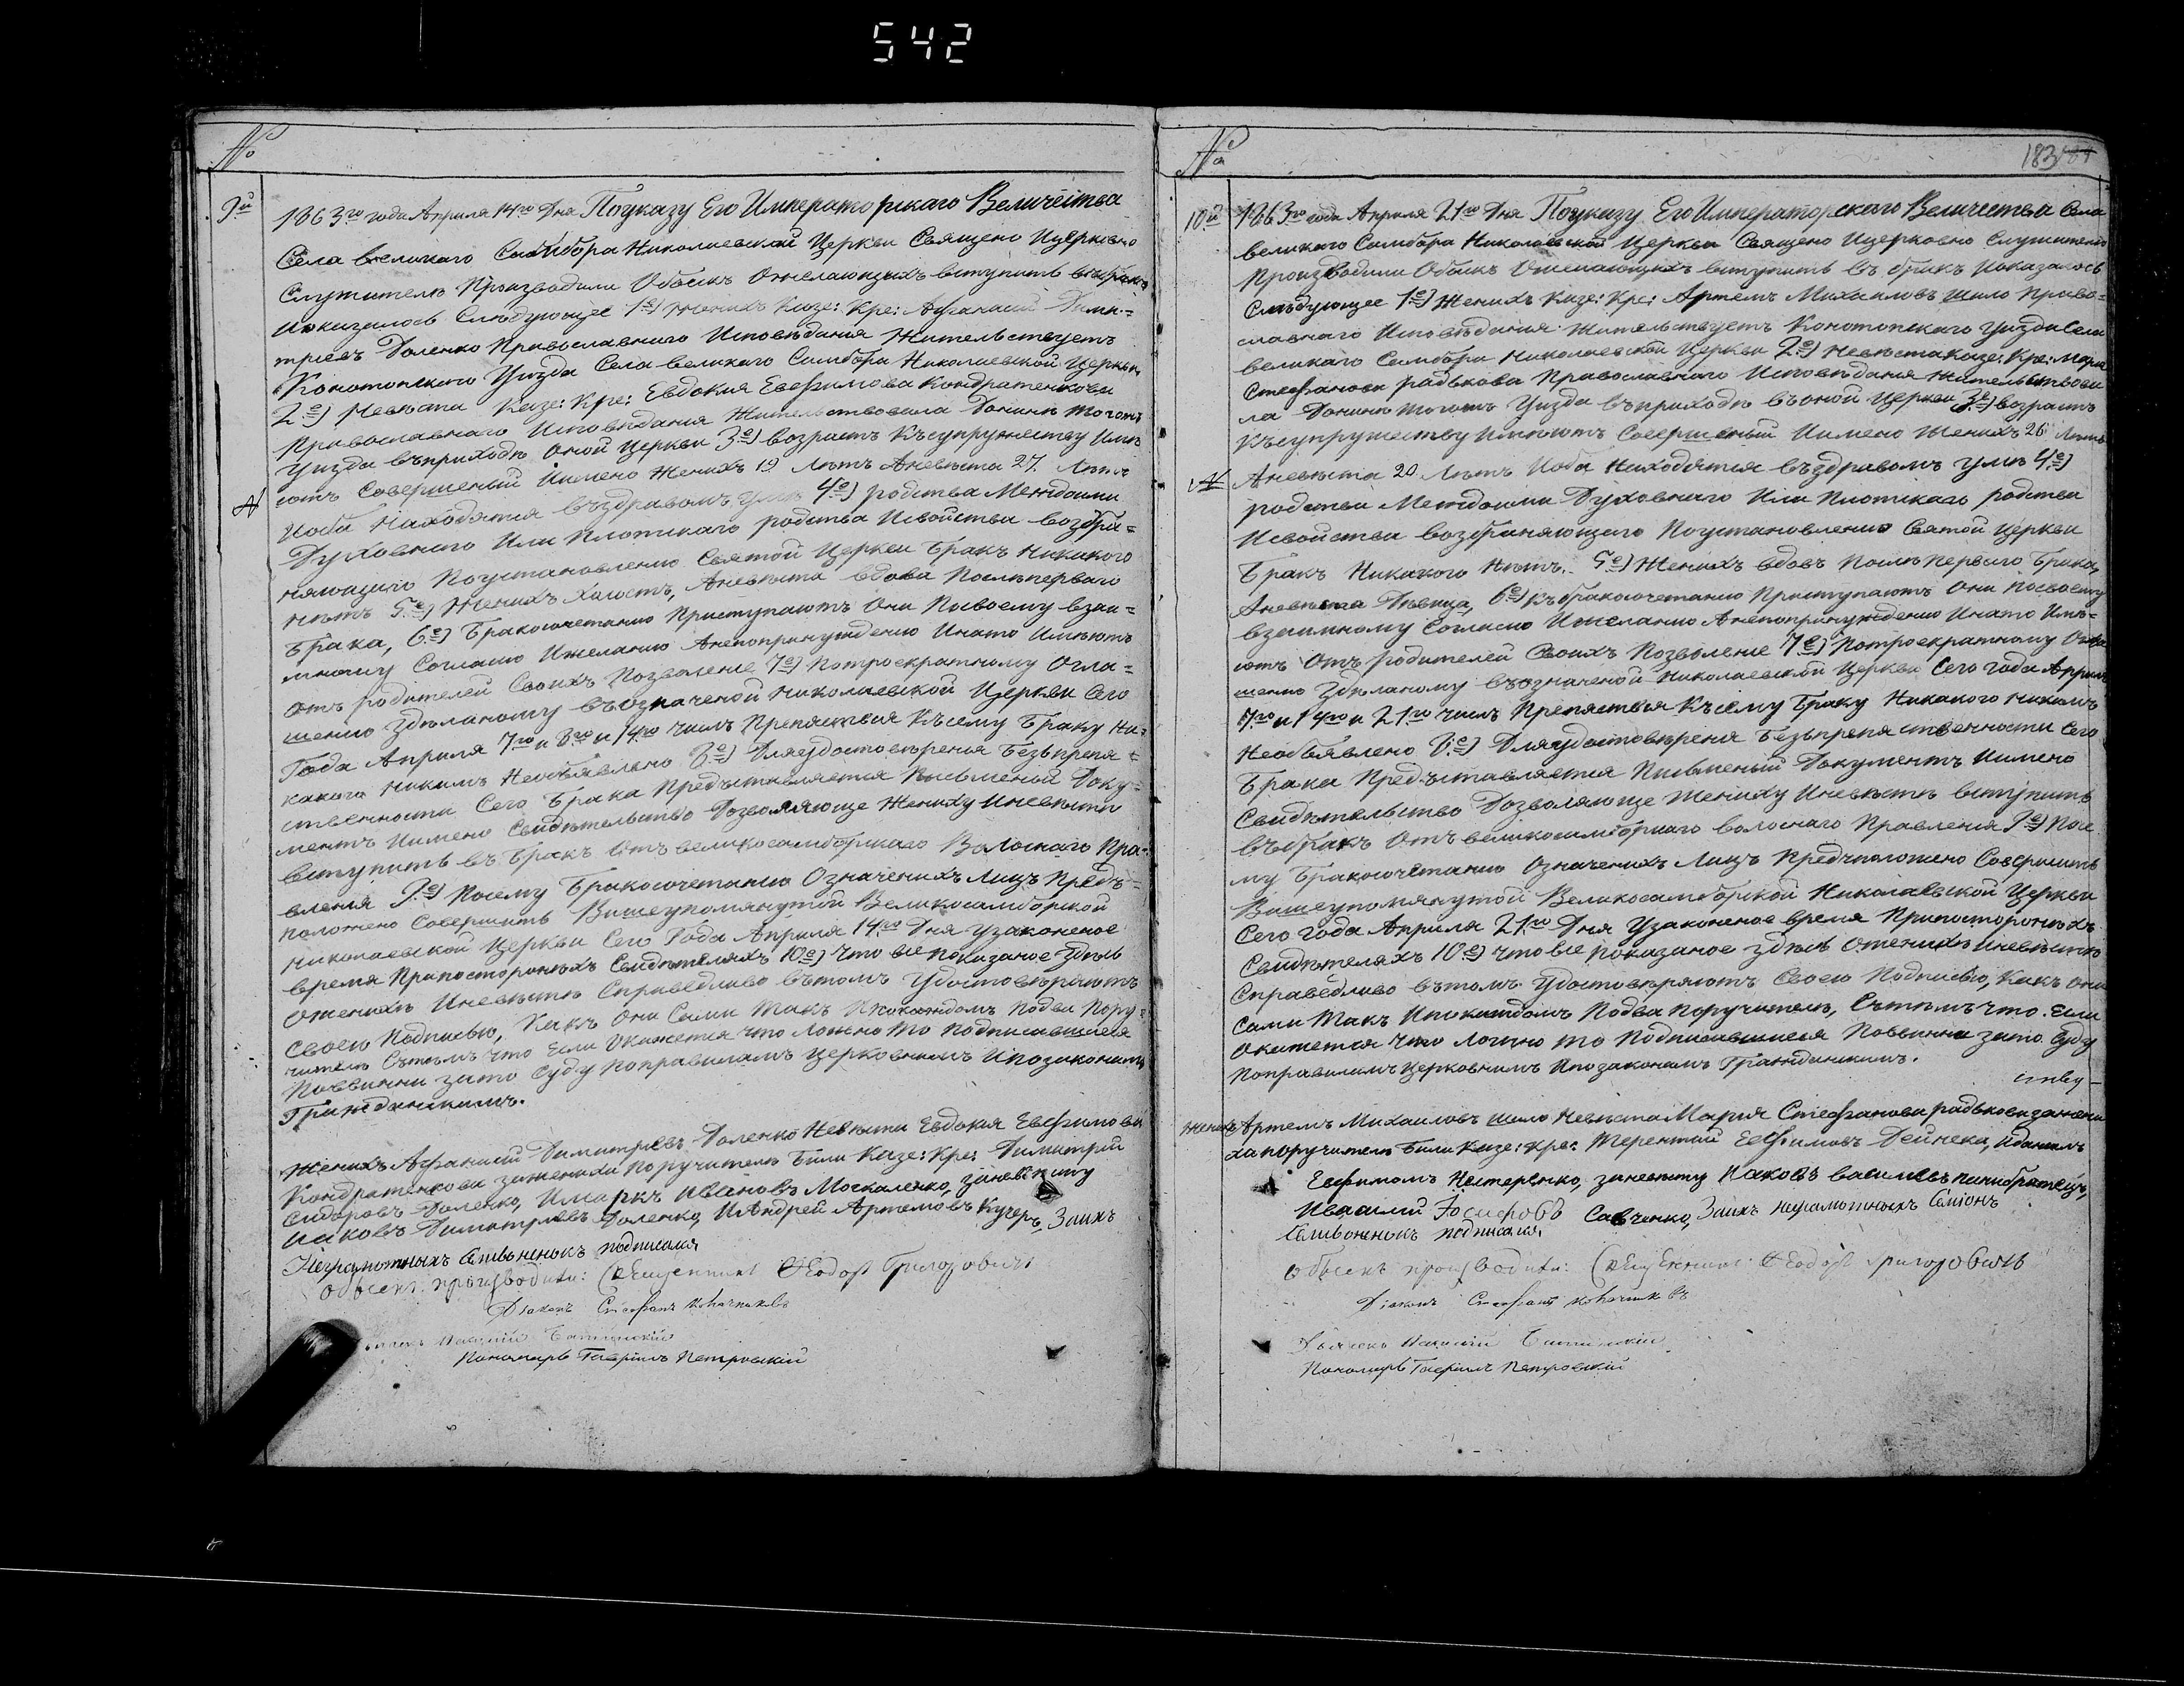 542
№
9й
1863го года Апреля 14го Дня Поуказу Его Императорскаго Величества
Села великаго Самбора Николаевской Церкви Священо Ицерковно
Служители Производили Обыскъ Ожелающихъ вступить въбракъ
Показалось Слѣдующее 1е) женихъ Казе: Кре: Афанасий Дими-
триевъ Доленко Православнаго Исповѣдания Жительствуетъ
Конотопскаго Уизда Села великаго Самбора Николаевской Церкви
2е) Невѣста Казе: Кре: Евдокия Евефимова Кондратенкова
Православнаго Исповѣдания Жительствовала Донинѣ тогожъ
Уизда въприходѣ Оной Церкви 3е) возрастъ Късупружеству Имѣ
ютъ Совершеный Иимено Женихъ 19 Лѣтъ Аневѣста 27 Лѣтъ
Иоба Находятся въздравомъ умѣ 4е) родства Междоими
Духовнаго Или Плотскаго родства Исвойства возбра-
няющаго Поустановлению Святой Церкви Бракъ Никакого
нѣтъ 5е) Женихъ Холостъ, Аневѣста вдова Послѣперваго
Брака, 6е) Бракосочетанию Приступаютъ Они Посвоему взаи-
мному Согласию Ижеланию Анепопринуждению Инато Имѣютъ
Отъ родителей Своихъ Позволение 7е) Потроекратному Огла-
шению Здѣланому въозначеной Николаевской Церкви Сего
Года Апреля 7го и 8го и 14го числъ Препяствия Късему Браку Ни-
какого никимъ Необъявлено 8е) Дляудостовѣрения Безъпрепя-
ственности Сего Брака Предъставляется Письменой Доку-
ментъ Иимено Свидѣтельство Дозволяюще Жениху Иневѣстѣ
вступить въ Бракъ Отъ великосамборскаго Волоснаго Пра-
вления 9е) Посему Бракосочетанию Означенихъ Лицъ Предъ-
положено Совершить Вишеупомянутой Великосамборской
Николаевской Церкви Сего Года Апреля 14го Дня Узаконеное
время Припосторонѣхъ Свидѣтеляхъ 10е) что все показаное здѣсь
Оженихѣ Иневѣстѣ Справедливо вътомъ Удостовѣряютъ
Своею Подписью, Какъ Они Сами такъ Ипокаждомъ Подва Пору-
чителѣ Сътѣмъ что Если Окажется что Ложно то Подписавшиеся
Повинни зато Суду поправиламъ Церковнимъ Ипозаконамъ
Гражданскимъ.
Женихъ Афанасий Димитриевъ Доленко Невѣста Евдокия Евефимова
Кондратенкова зажениха Поручители Были Казе: Кре: Димитрий
Сидоровъ Доленко, Имаркъ Ивановъ Москаленко, заневѣсту
Иаковъ Димитриевъ Доленко, Иандрей Артемовъ Кучеръ, Заихъ
Неграмотныхъ подписался
Обыскъ производили: Священникъ Феодоръ Григоровичъ
Дияконъ Стефанъ
Пономарь Гавриилъ Петровский
№
183
10й
1863го года Апреля 21го Дня Поуказу Его Императорскаго Величества Села
великаго Самбора Николаевской Церкви Священо Ицерковно Служители
Производили Обыскъ Ожелающихъ вступить въ бракъ Показалось
Слѣдующее 1е) Женихъ Казе: Кре: Артемъ Михаиловъ Шило Право-
славнаго Исповѣдания Жительствуетъ Конотопскаго Уизда Села
великаго Самбора Николаевской Церкви 2е) Невѣста Казе: Кре: Мария
Стефанова радькова Православнаго Исповѣдания Жительствова
ла Донинѣ тогожъ Уизда въприходѣ въоной Церкви 3е) возрастъ
Късупружеству Имѣютъ Совершеный Иимено Женихъ 26 Лѣтъ
Аневѣста 20 Лѣтъ Иоба Находятся въздравомъ умѣ 4е)
родства Междоими Духовнаго Или Плотскаго родства
Исвойства возбраняющаго Поустановлению Святой Церкви
Бракъ Никакого Нѣтъ. 5е) Женихъ вдовъ Послѣ Перваго Брака,
Аневѣста Дѣвица, 6е) Къбракосочетанию Приступаютъ Они Посвоему
взаимному Согласию Ижеланию Анепопринуждению Инато Имѣ-
ютъ Отъ родителей Своихъ Позволение 7е) Потроекратному Огла
шению Здѣланому въозначеной Николаевской Церкви Сего года Апреля
7го и 14го и 21го числъ Препяствия Късему Браку Никакого Никимъ
Необъявлено 8е) Дляудостовѣрения Безъпрепяственности Сего
Брака Предъставляется Письменый Документъ Иимено
Свидѣтельство Дозволяюще Жениху Иневѣстѣ вступить
въбракъ Отъ великосамборскаго волоснаго Правления 9е) Посе
му Бракосочетанию Означенихъ Лицъ Предъположено Совершить
Вишеупомянутой Великосамборской Николаевской Церкви
Сего года Апреля 21го Дня Узаконеное время Припосторонѣхъ
Свидѣтеляхъ 10е) что все показаное здѣсь Оженихѣ Иневѣстѣ
Справедливо вътомъ Удостовѣряютъ Своею Подписью, Какъ Они
Сами такъ Ипокаждомъ Подва Поручителѣ, Сътѣмъ что Если
Окажется что Ложно то Подписавшиеся Повинни зато Суду
Поправиламъ Церковнимъ Ипозаконамъ Гражданскимъ.
Женихъ Артемъ Михаиловъ Шило Невѣста Мария Стефанова радькова зажени
ха поручители Были Казе: Кре: Терентий Евфимовъ Дейнека, Иданиилъ
Евфимовъ Нестеренко, заневѣсту Иаковъ васильевъ
Ивасилий Иосифовъ Савченко, Заихъ неграмотныхъ Симионъ
подписался,
Обыскъ производили: Священникъ Феодоръ Григоровичъ
Дияконъ Стефанъ
Дьячекъ
Пономарь Гавриилъ Петровский